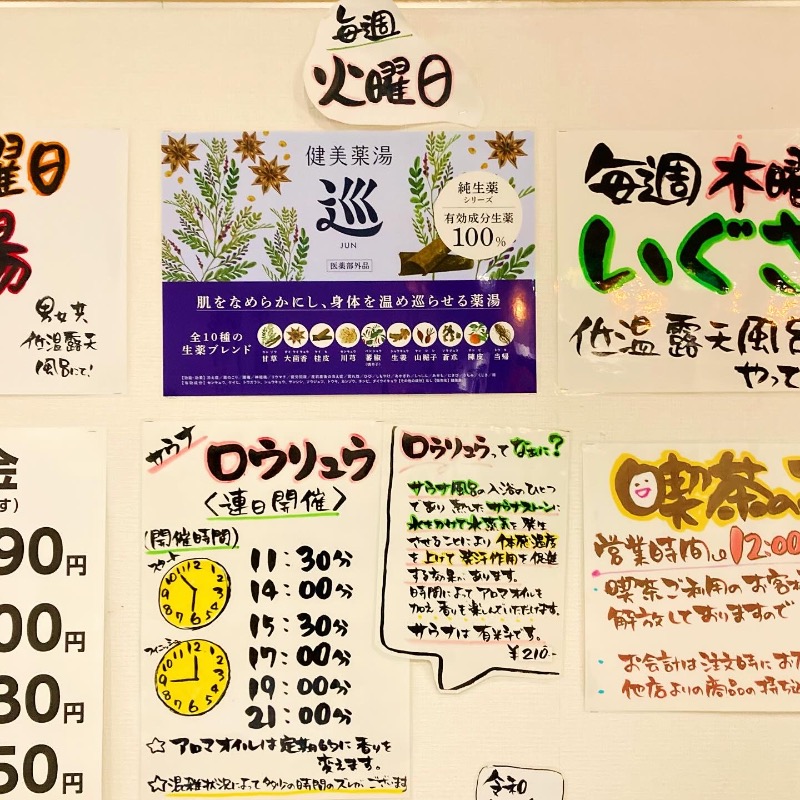 毎週
火曜日
曜日
湯
男女共
低温露天
風呂にて!
健美薬湯
巡
JUN
医薬部外品
純生薬
シリーズ
有効成分生薬
100%
肌をなめらかにし、身体を温め巡らせる薬湯
全10種の
生薬ブレンド
甘草 大茴香 桂皮 川芎 蕃椒 生姜 山梔子 蒼朮 陳皮 当帰
毎週 木曜
いぐさ
低温露天風呂
やって
金
す)
90円
00円
30円
50円
サウナ
ロウリュウ
〈連日開催〉
(開催時間)
スタート
11:30分
14:00分
15:30分
17:00分
19:00分
21:00分
☆アロマオイルは定期的に香りを
変えます。
☆混雑状況によって多少の時間のズレがございます
ロウリュウってなぁに?
サウナ風呂の入浴のひとつ
であり熱したサウナストーンに
水をかけて水蒸気を発生
させることにより体感温度
を上げて発汗作用を促進
する効果があります。
時間によってアロマオイルを
加え香りを楽しんでいただけます。
サウナは有料です。
¥210-
喫茶の
営業時間は12:00
・喫茶ご利用のお客様
解放しておりますので
・お会計は注文時にお
・他店よりの商品の持ち込
令和